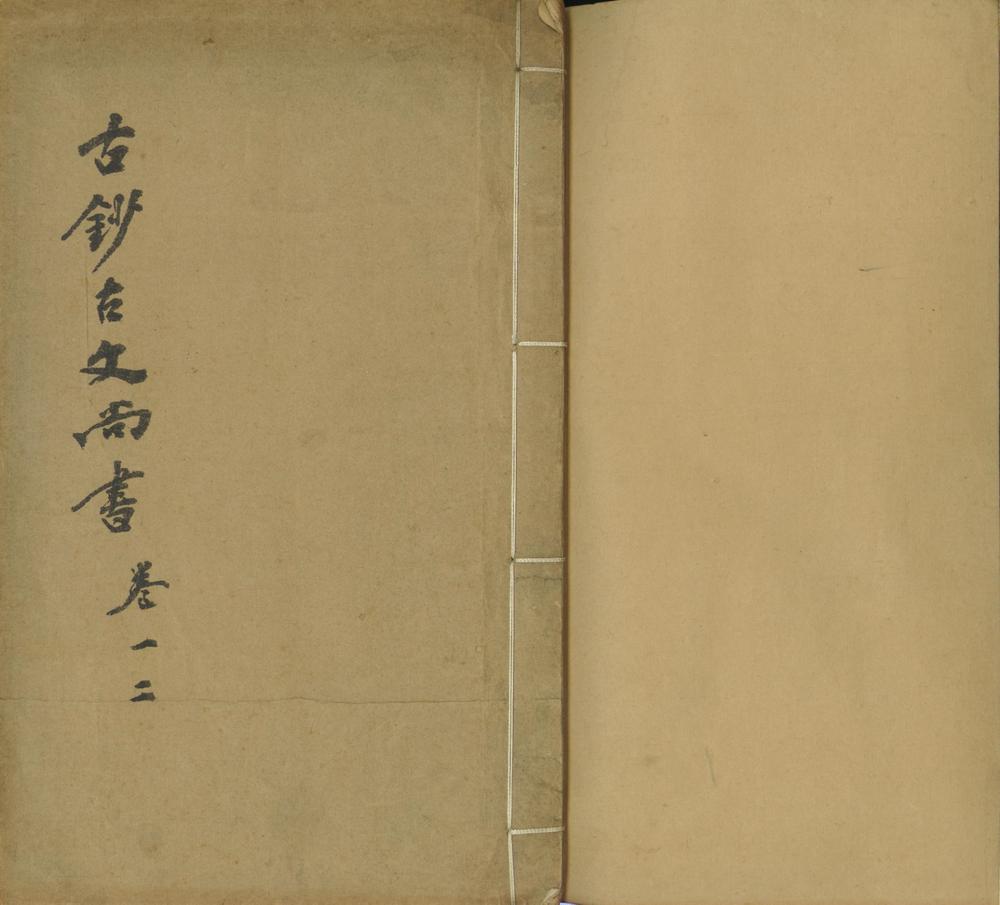 古鈔古文尚書 卷一二